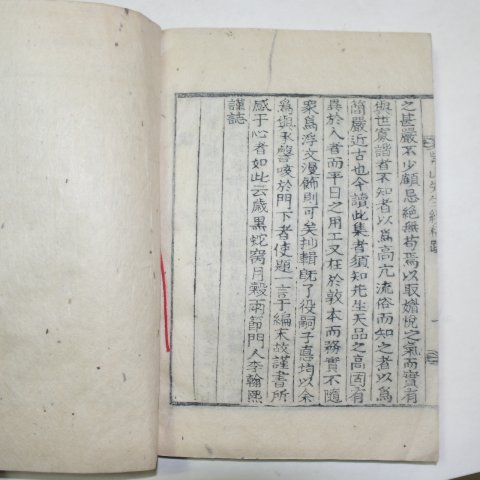 之甚嚴不少顧忌絶無苟焉以取媚悅之氣而實有
與世寡諧者不知者以爲高亢流俗而知之者以爲
簡嚴近古也今讀此集者須知先生天品之高固有
異於人者而平日之用工又在於敦本而務實不隨
衆爲浮文漫飾則可矣抄輯旣了役嗣子憙均以余
爲與承謦咳於門下者使題一言于編末故謹書所
感于心者如此云歲黑蛇窝月穀雨節門人李翰熙
謹誌